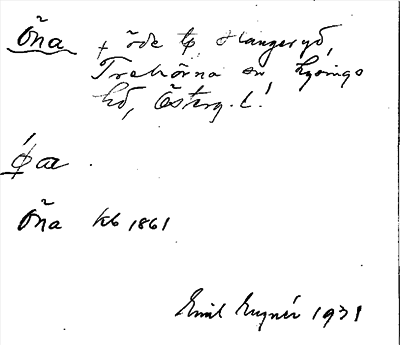 Öna + öde tp, Hangeryd,
Trehörna sn Kydinge
hd, Österg. l.!
ǿ́ca .
Öna Kb 1861
Emil Eugnér 1931